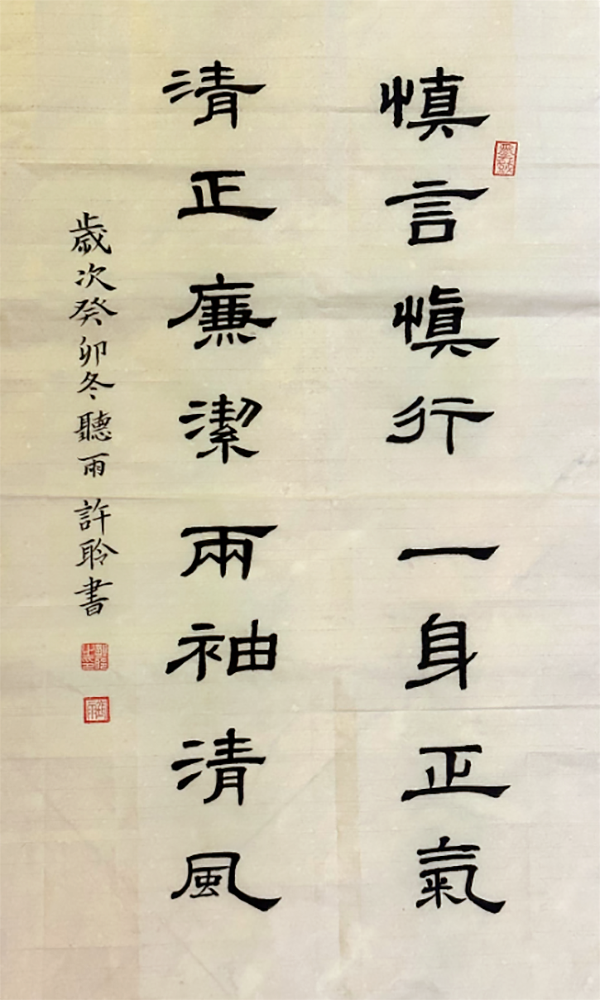 慎言慎行一身正氣
清正廉潔兩袖清風
歲次癸卯冬聽雨許聆書